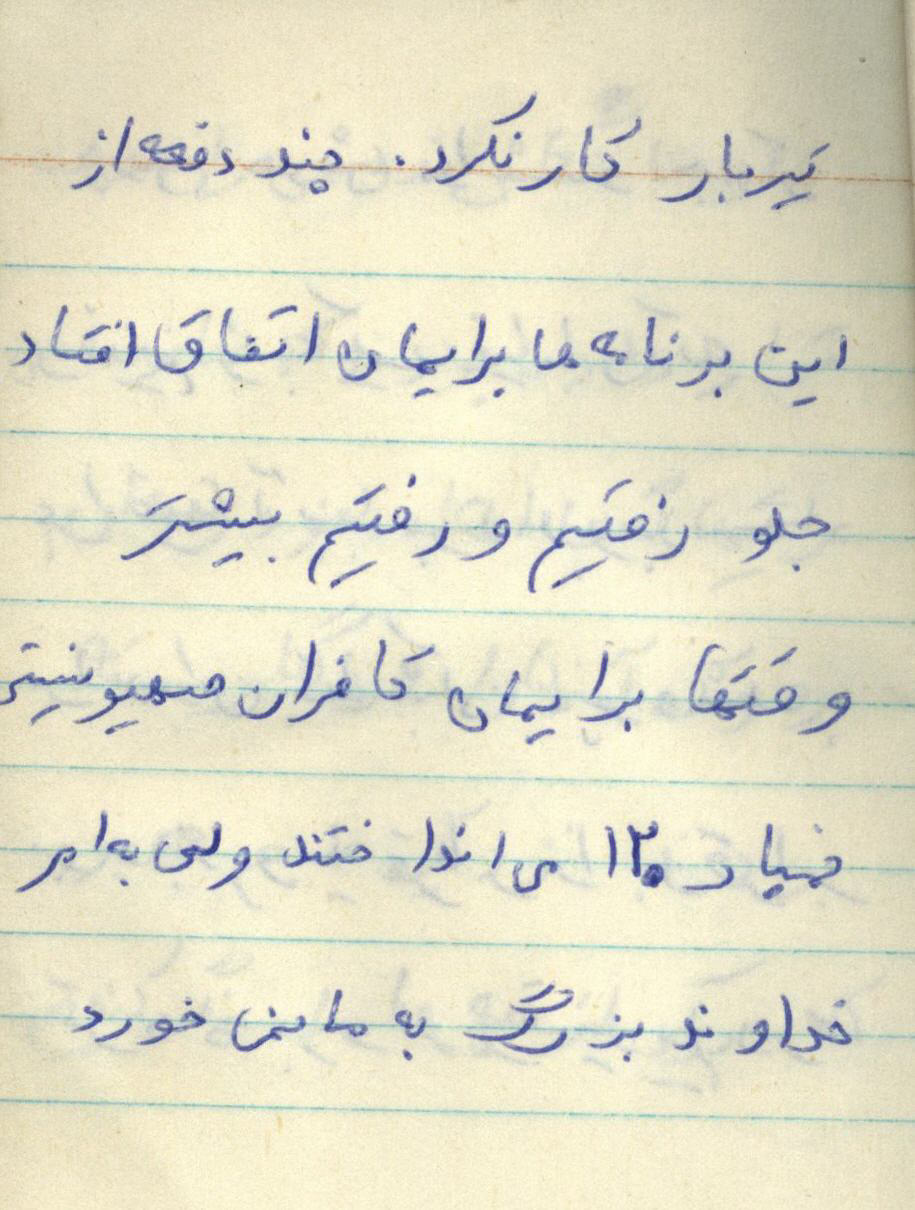 تیربار کار نکرد. چند دفعه از
این برنامه ها برایمان اتفاق افتاد
جلو رفتیم و رفتیم بیشتر
وقتها برایمان کافران صهیونیستی
خمپاره ۱۲۰ می انداختند ولی به امر
خداوند بزرگ به ما نمی خورد